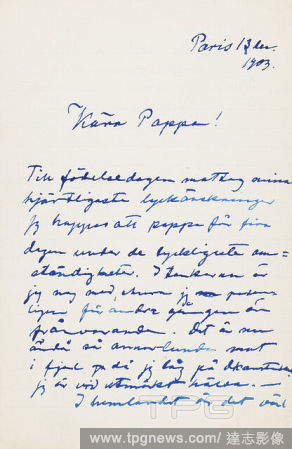 Paris 13 dec.
1903.
Kära Pappa!
Till födelsedagen mottag mina
hjärtligaste lyckönskningar
Jag hoppas att pappa får fira
dagen under de lyckligaste om=
ständigheter. I tankarna är
jag nog med, ehuru jag
för andra gången är
frånvarande. Det är nu
ändå så annorlunda mot
i fjol då jag låg på
jag är vid utmärkt hälsa. —
I hemlandet är det väl
TPG
www.tpgnews.com 達志影像